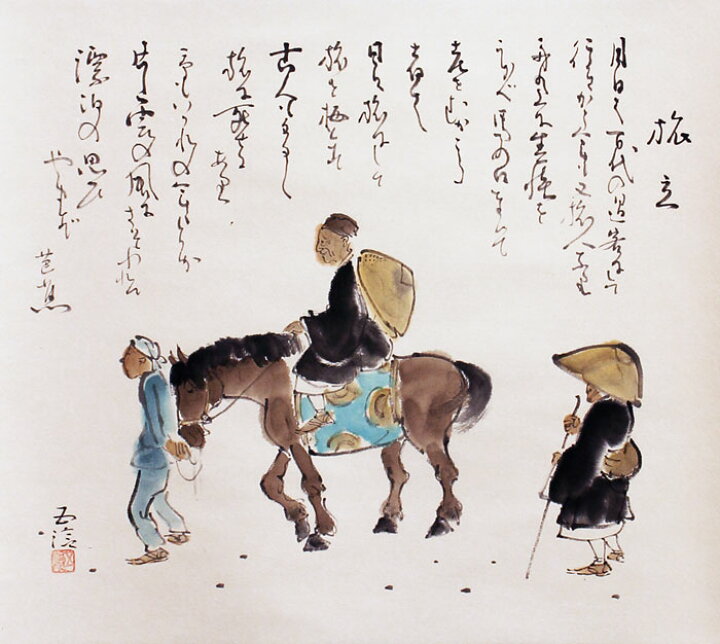 旅立
月日は百代の過客にして
行かふ年も又旅人なり
舟の上に生涯を
うかべ馬の口とらへて
老をむかふる
者は
日々旅にして
旅を栖とす
古人も多く
旅に死せるあり
予もいづれの年よりか
片雲の風にさそはれて
漂泊の思ひ
やまず
芭蕉